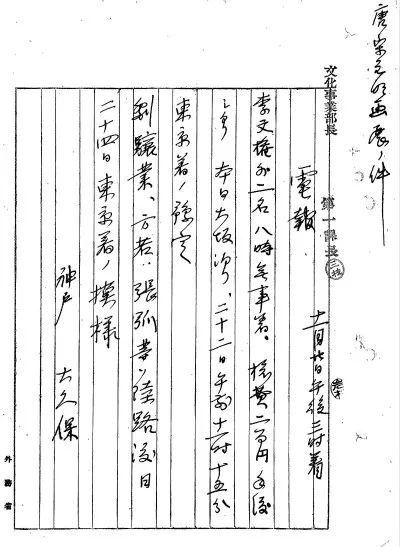 唐宋元明画展ノ件
文化事業部長 第一課長
電報 十一月廿日午後三時着
李文権外二名八時無事着、費二百円手渡
本日大坂泊、二十二日午前十一時十五分
東京着ノ豫定
劉驤業、方若、張弧等ハ陸路後日
二十四日東京着ノ模様
神戸 大久保
外務省